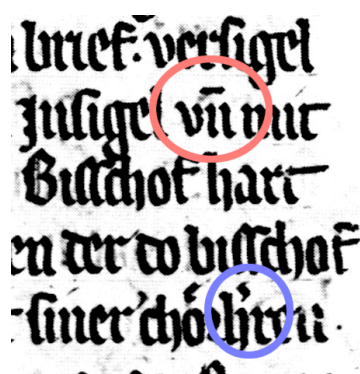 brief. versigel
Jnsigel vn̄ mit
Bisschof hart
der do bisschof
siner